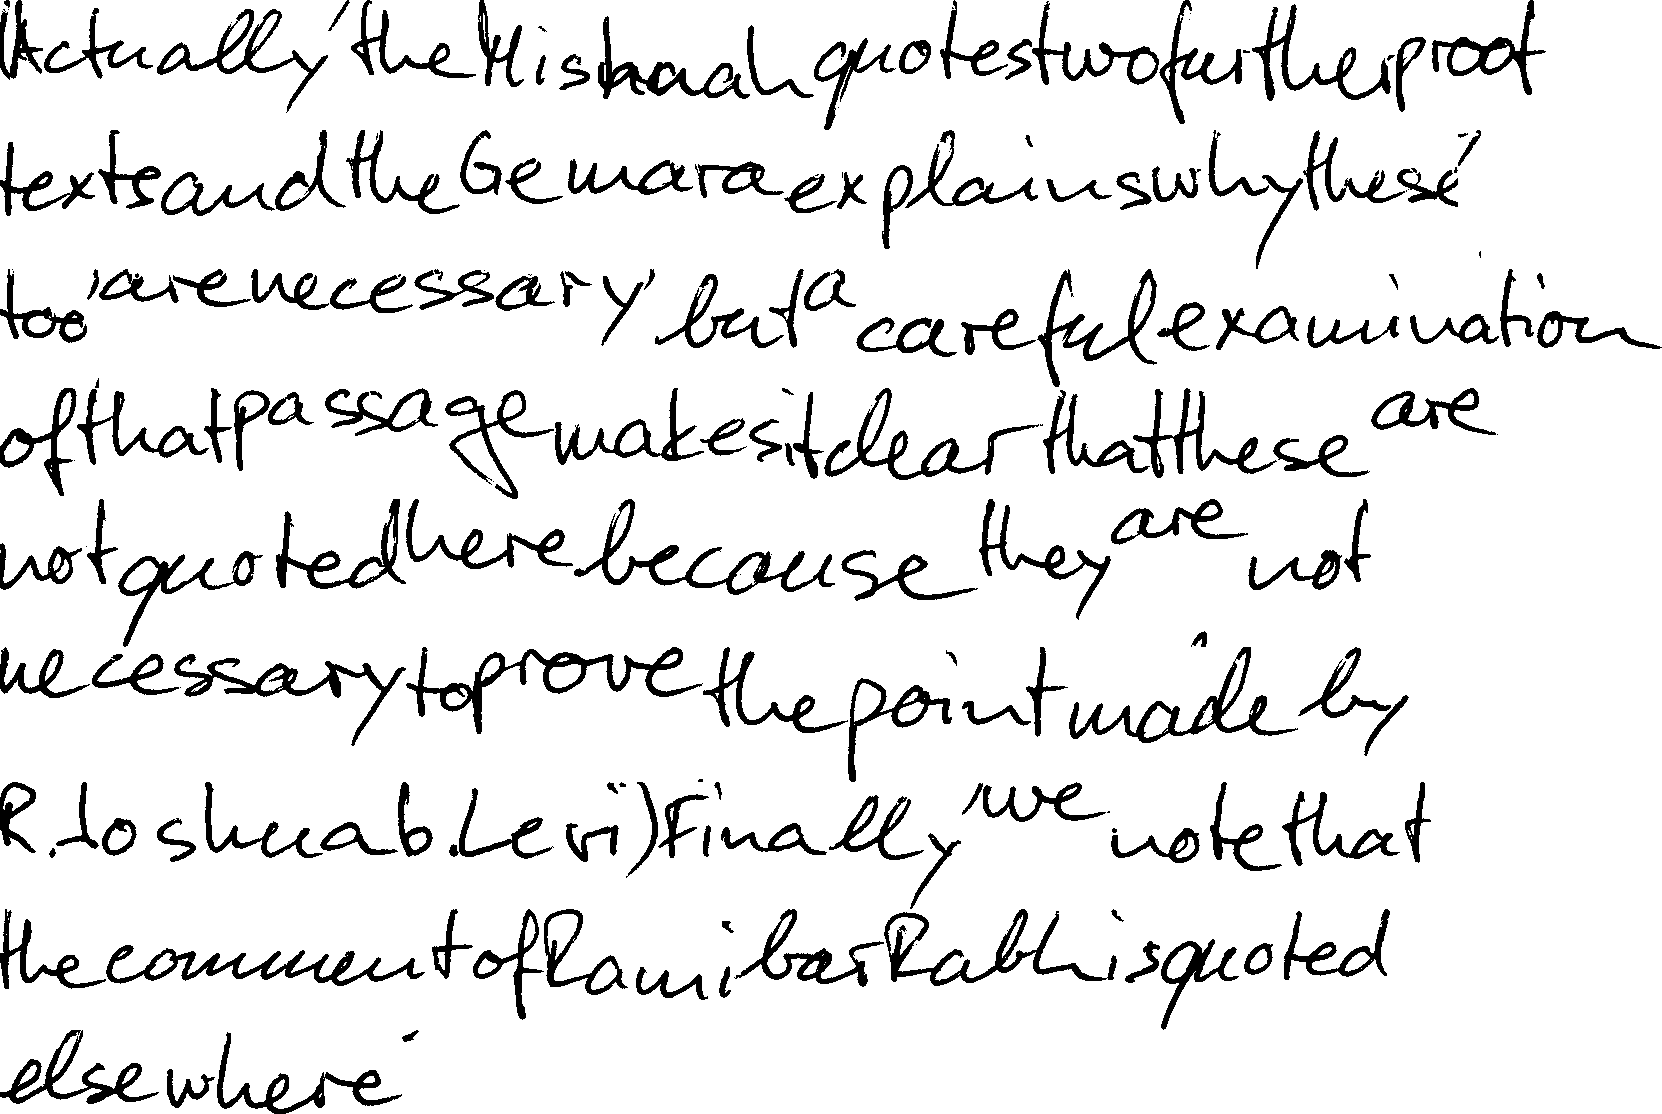 Actually the Mishnah quotes two further proof
texts and the Gemara explains why these
too 'are necessary' but a careful examination
of that passage makes it clear that these are
not quoted here because they are not
necessary to prove the point made by
R. Joshua b. Levi) Finally we note that
the comment of Rami bar Rabh is quoted
elsewhere